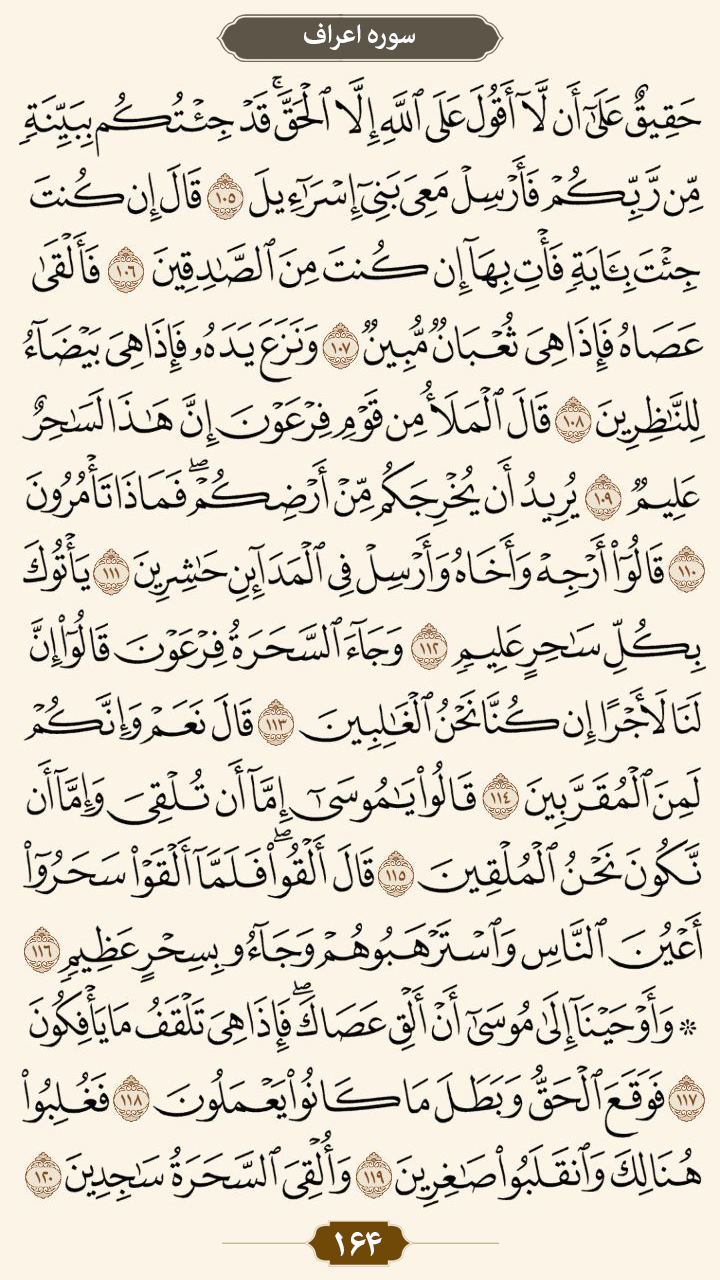 سوره اعراف
حَقِيقٌ عَلَىٰٓ أَن لَّآ أَقُولَ عَلَى ٱللَّهِ إِلَّا ٱلْحَقَّۚ قَدْ جِئْتُكُم بِبَيِّنَةٍ
مِّن رَّبِّكُمْ فَأَرْسِلْ مَعِىَ بَنِىٓ إِسْرَٰٓءِيلَ ١٠٥ قَالَ إِن كُنتَ
جِئْتَ بِـَٔايَةٍ فَأْتِ بِهَآ إِن كُنتَ مِنَ ٱلصَّٰدِقِينَ ١٠٦ فَأَلْقَىٰ
عَصَاهُ فَإِذَا هِىَ ثُعْبَانٌ مُّبِينٌ ١٠٧ وَنَزَعَ يَدَهُۥ فَإِذَا هِىَ بَيْضَآءُ
لِلنَّٰظِرِينَ ١٠٨ قَالَ ٱلْمَلَأُ مِن قَوْمِ فِرْعَوْنَ إِنَّ هَٰذَا لَسَٰحِرٌ
عَلِيمٌ ١٠٩ يُرِيدُ أَن يُخْرِجَكُم مِّنْ أَرْضِكُمْۖ فَمَاذَا تَأْمُرُونَ
١١٠ قَالُوٓا۟ أَرْجِهْ وَأَخَاهُ وَأَرْسِلْ فِى ٱلْمَدَآئِنِ حَٰشِرِينَ ١١١ يَأْتُوكَ
بِكُلِّ سَٰحِرٍ عَلِيمٍ ١١٢ وَجَآءَ ٱلسَّحَرَةُ فِرْعَوْنَ قَالُوٓا۟ إِنَّ
لَنَا لَأَجْرًا إِن كُنَّا نَحْنُ ٱلْغَٰلِبِينَ ١١٣ قَالَ نَعَمْ وَإِنَّكُمْ
لَمِنَ ٱلْمُقَرَّبِينَ ١١٤ قَالُوا۟ يَٰمُوسَىٰٓ إِمَّآ أَن تُلْقِىَ وَإِمَّآ أَن
نَّكُونَ نَحْنُ ٱلْمُلْقِينَ ١١٥ قَالَ أَلْقُوا۟ۖ فَلَمَّآ أَلْقَوْا۟ سَحَرُوٓا۟
أَعْيُنَ ٱلنَّاسِ وَٱسْتَرْهَبُوهُمْ وَجَآءُو بِسِحْرٍ عَظِيمٍ ١١٦
۞ وَأَوْحَيْنَآ إِلَىٰ مُوسَىٰٓ أَنْ أَلْقِ عَصَاكَۖ فَإِذَا هِىَ تَلْقَفُ مَا يَأْفِكُونَ
١١٧ فَوَقَعَ ٱلْحَقُّ وَبَطَلَ مَا كَانُوا۟ يَعْمَلُونَ ١١٨ فَغُلِبُوا۟
هُنَالِكَ وَٱنقَلَبُوا۟ صَٰغِرِينَ ١١٩ وَأُلْقِىَ ٱلسَّحَرَةُ سَٰجِدِينَ ١٢٠
۱۶۴